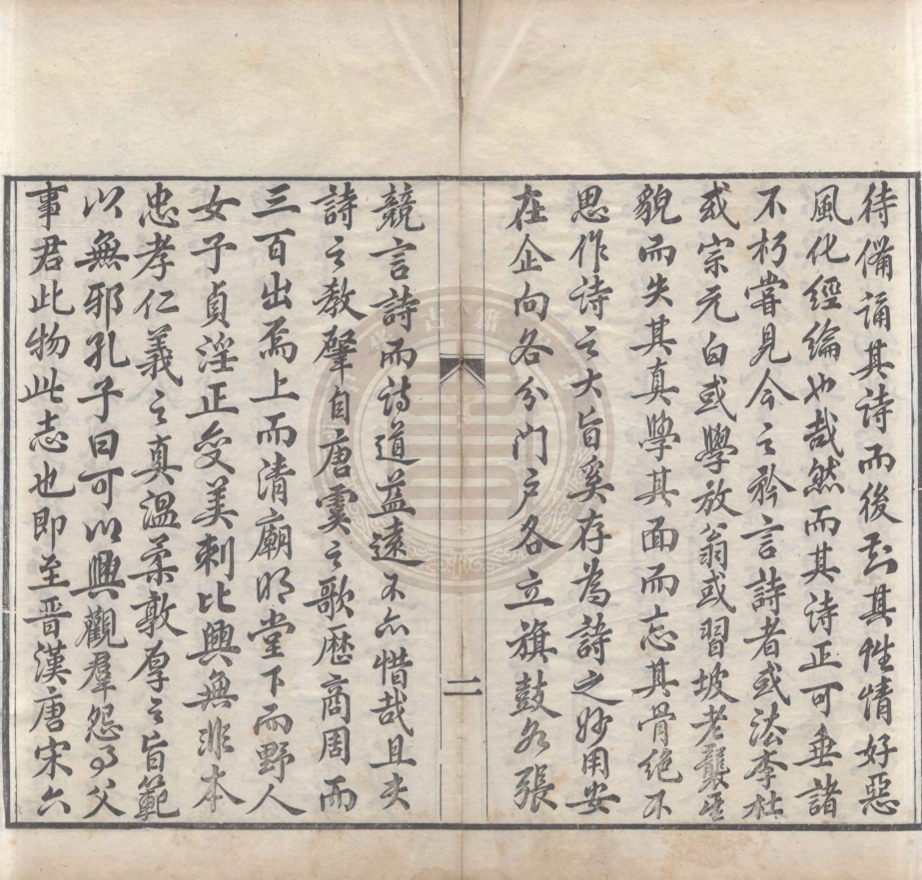 待備誦其詩而後知其性情好惡
風化經綸也哉然而其诗正可垂諸
不朽嘗見今之矜言詩者或法李杜
或宗元白或學放翁或習坡老襲其
貌而失其真學其面而忘其骨絶不
思作詩之大旨奚存為詩之妙用安
在企向各分门户各立旗鼓各張
二
競言詩而诗道益遠不亦惜哉且夫
詩之教肇自唐虞之歌歷商周而
三百出焉上而清廟明堂下而野人
女子貞淫正变美刺比興無非本
忠孝仁義之真温柔敦厚之旨範
以無邪孔子曰可以興觀羣怨事父
事君此物此志也即至晋漢唐宋六